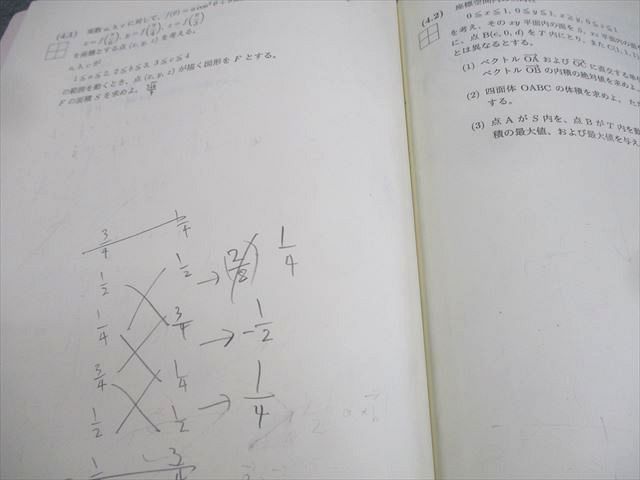 (4.1) 実数 a, b, c に対して, f(θ) =
を座標とする点 (x, y, z) を考える.
a, b, c が
1 ≦ a ≦ 2, 2 ≦ b ≦ 3, 3 ≦ c ≦ 4
の範囲を動くとき, 点 (x, y, z) が描く図形を F とする.
F の面積 S を求めよ.
3/4 1/4
1/2 1/2 → 1/4
1/4 3/4 → -1/2
3/4 1/4 → 1/4
1/2 1/2
1 3/4
(4.2)
0≦x≦1, 0≦y≦1,
を考え, その xy 平面内の面を S, zx 平面内の
に, 点 B(c, 0, d) を T 内にとり, また C(1, 1, 1)
とは異なるとする.
(1) ベクトル OA および OC に直交する
ベクトル OB の内積の絶対値を求めよ.
(2) 四面体 OABC の体積を求めよ. た
する.
(3) 点 A が S 内を, 点 B が T 内を動
積の最大値, および最大値を与え